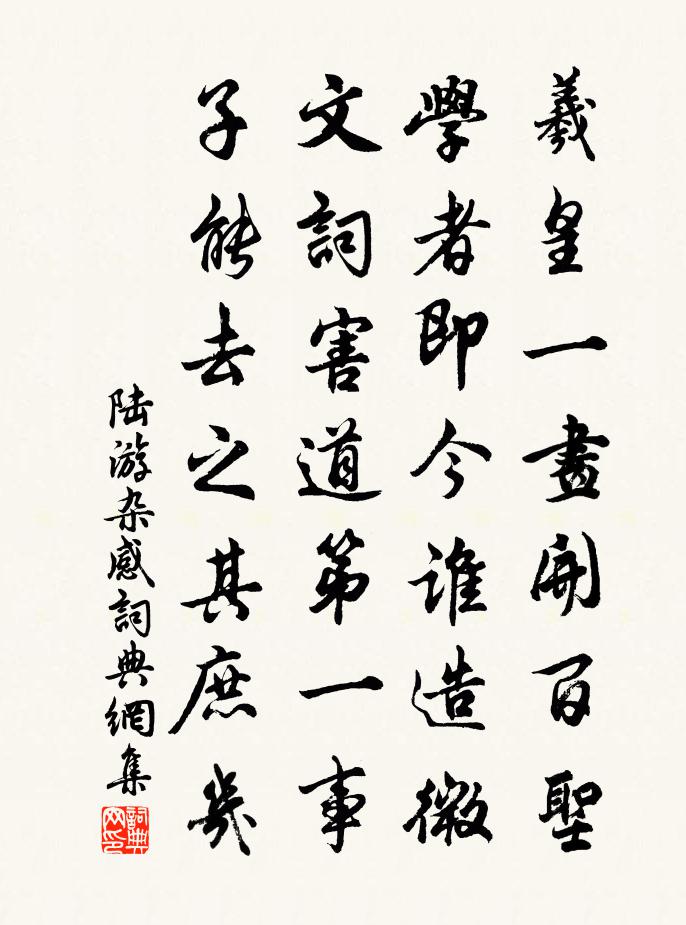 羲皇一畫開百聖
學者即今誰造微
文詞害道第一事
子能去之其庶幾
陆游杂感詞典網集
詞典网印